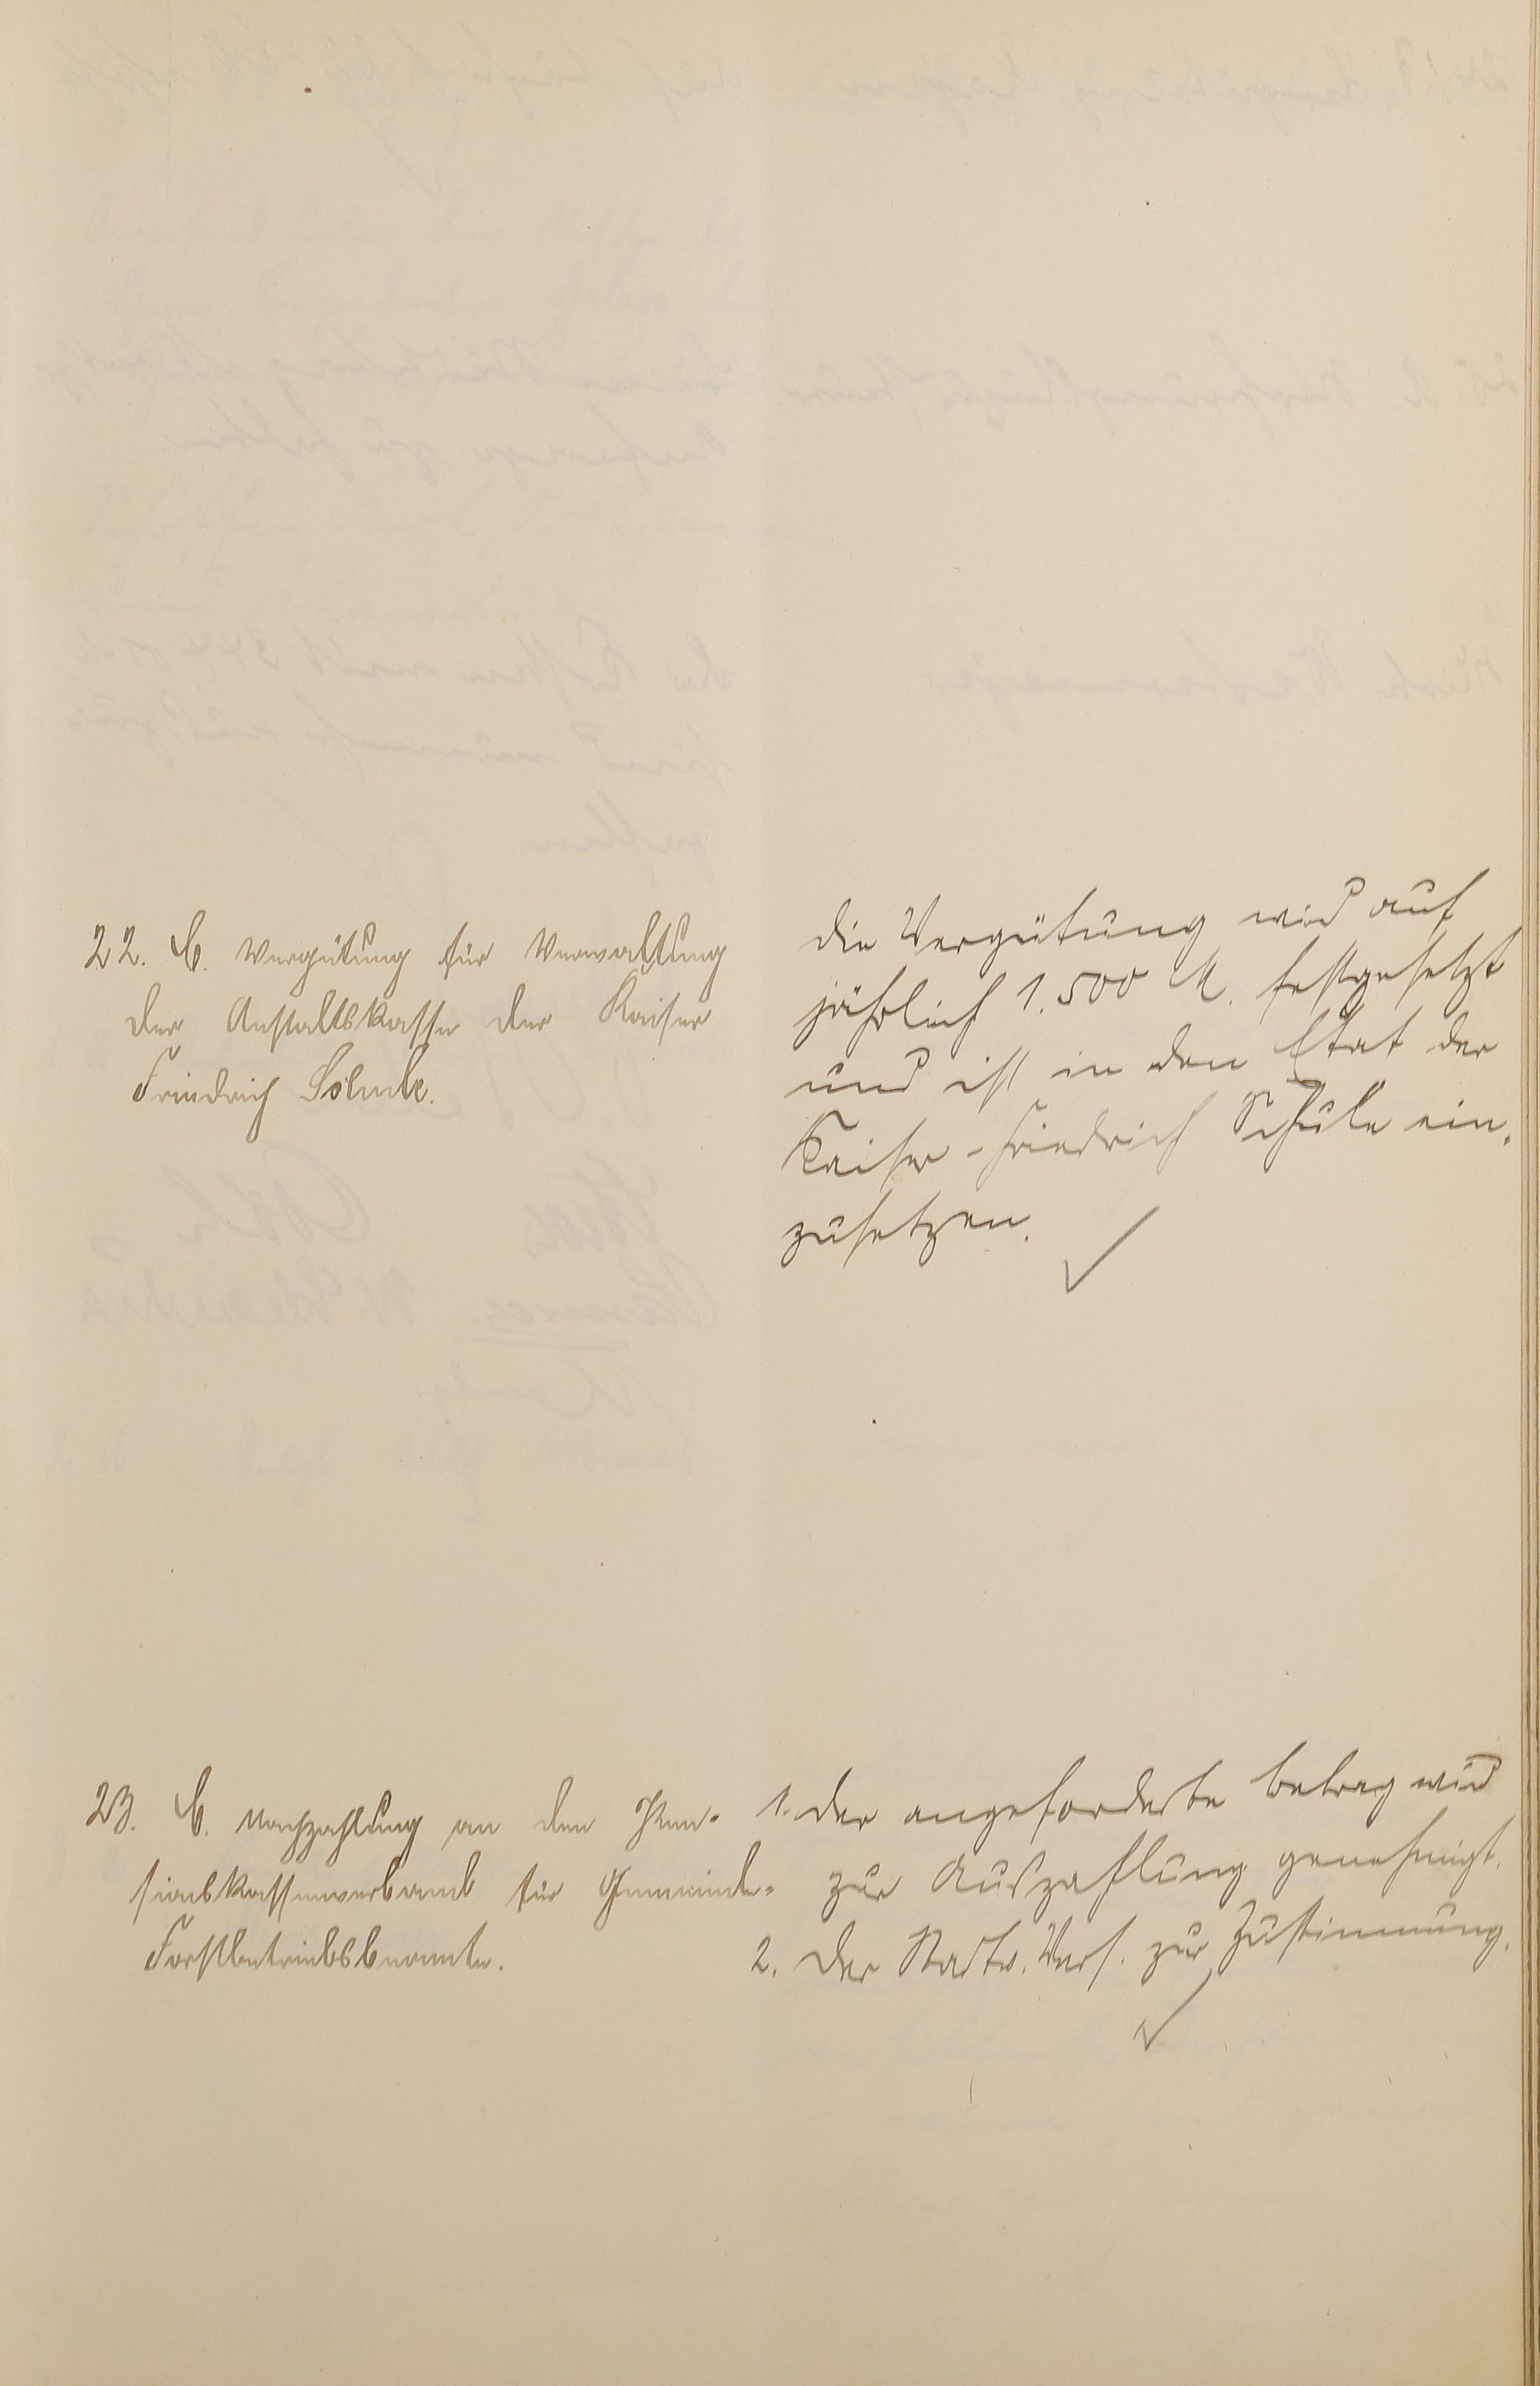 22. C. Vergütung für Verwaltung
der Anstaltskasse der Kaiser
Friedrich Schule.
die Vergütung wird auf
jährlich 1.500 M. festgesetzt
und ist in den Etat der
Kaiser-Friedrich Schule ein-
zusetzen.
23. C. Nachzahlung an den Pen-
sionskassenverband für Gemeinde-
Forstbetriebsbeamte.
1. der angeforderte Betrag wird
zur Auszahlung genehmigt.
2. Der Stadtv. Vers. zur Zustimmung.